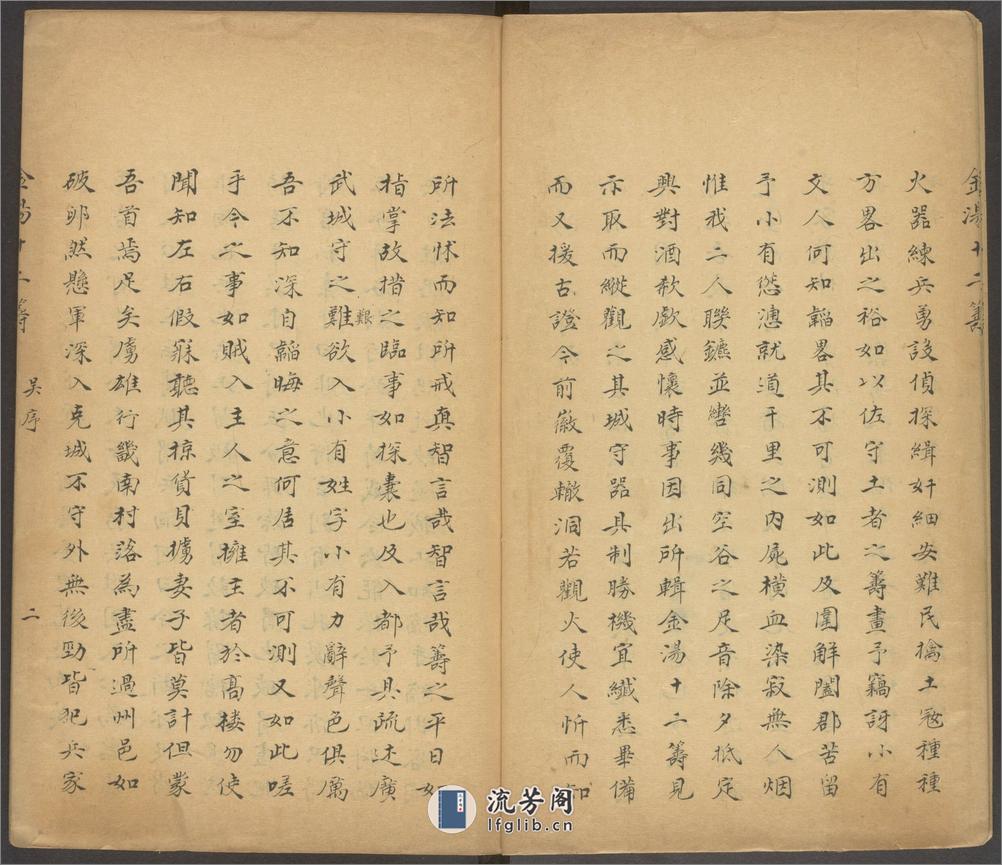 金湯十二籌
火器練兵勇設偵探緝奸細安難民擒土寇種種
方畧出之裕如以佐守土者之籌畫予竊訝小有
文人何知韜畧其不可測如此及圍解闔郡苦留
予小有慫慂就道千里之內屍橫血染寂無人烟
惟我二人聯鑣並轡幾同空谷之足音除夕抵定
興對酒欷歔感懷時事因出所輯金湯十二籌見
示取而縱觀之其城守器具制勝機宜纖悉畢備
而又援古證今前徽覆轍洞若觀火使人忻而知
所法怵而知所戒真智言哉智言哉籌之平日如
指掌故措之臨事如探囊也及入都予具疏述廣
武城守之難欲入小有姓字小有力辭聲色俱厲
艱
吾不知深自韜晦之意何居其不可測又如此嗟
乎今之事如賊入主人之室擁主者於高樓勿使
聞知左右假寐聽其掠貨貝擄妻子皆莫計但蒙
吾首焉足矣虜雄行畿南村落為盡所過州邑如
破卵然懸軍深入克城不守外無後勁皆犯兵家
金湯十二籌
吳序
二
流芳阁
lfglib.cn